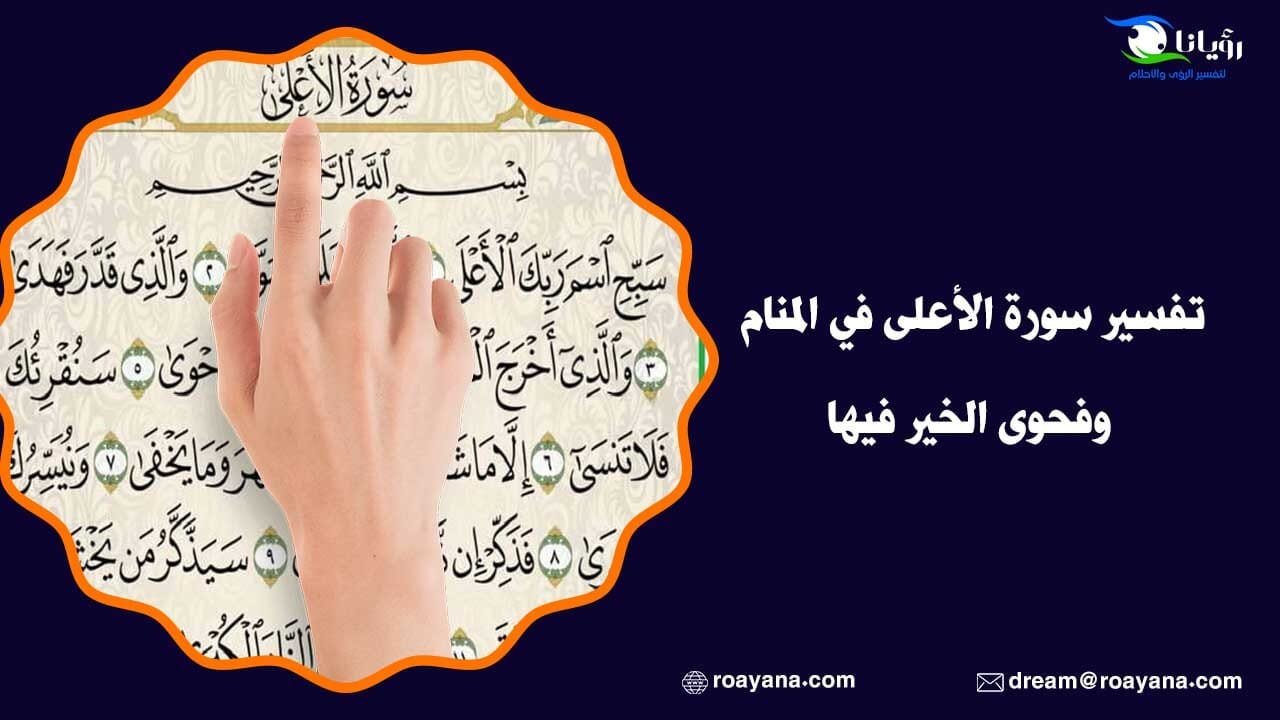 رؤيانا
لتفسير الرؤى والاحلام
سُورَةُ الأَعْلَى
بِسْمِ ٱللَّهِ ٱلرَّحْمَٰنِ ٱلرَّحِيمِ
سَبِّحِ ٱسْمَ رَبِّكَ ٱلْأَعْلَى ٢ وَٱلَّذِى قَدَّرَ فَهَدَىٰ
٣ وَٱلَّذِىٓ أَخْرَجَ ٥ سَنُقْرِئُكَ
فَلَا تَنسَىٰٓ ٦ إِلَّا مَا وَمَا يَخْفَىٰ ٧ وَنُيَسِّرُكَ
٨ فَذَكِّرْ إِن ٩ سَيَذَّكَّرُ مَن
تفسير سورة الأعلى في المنام
وفحوى الخير فيها
roayana.com
dream@roayana.com